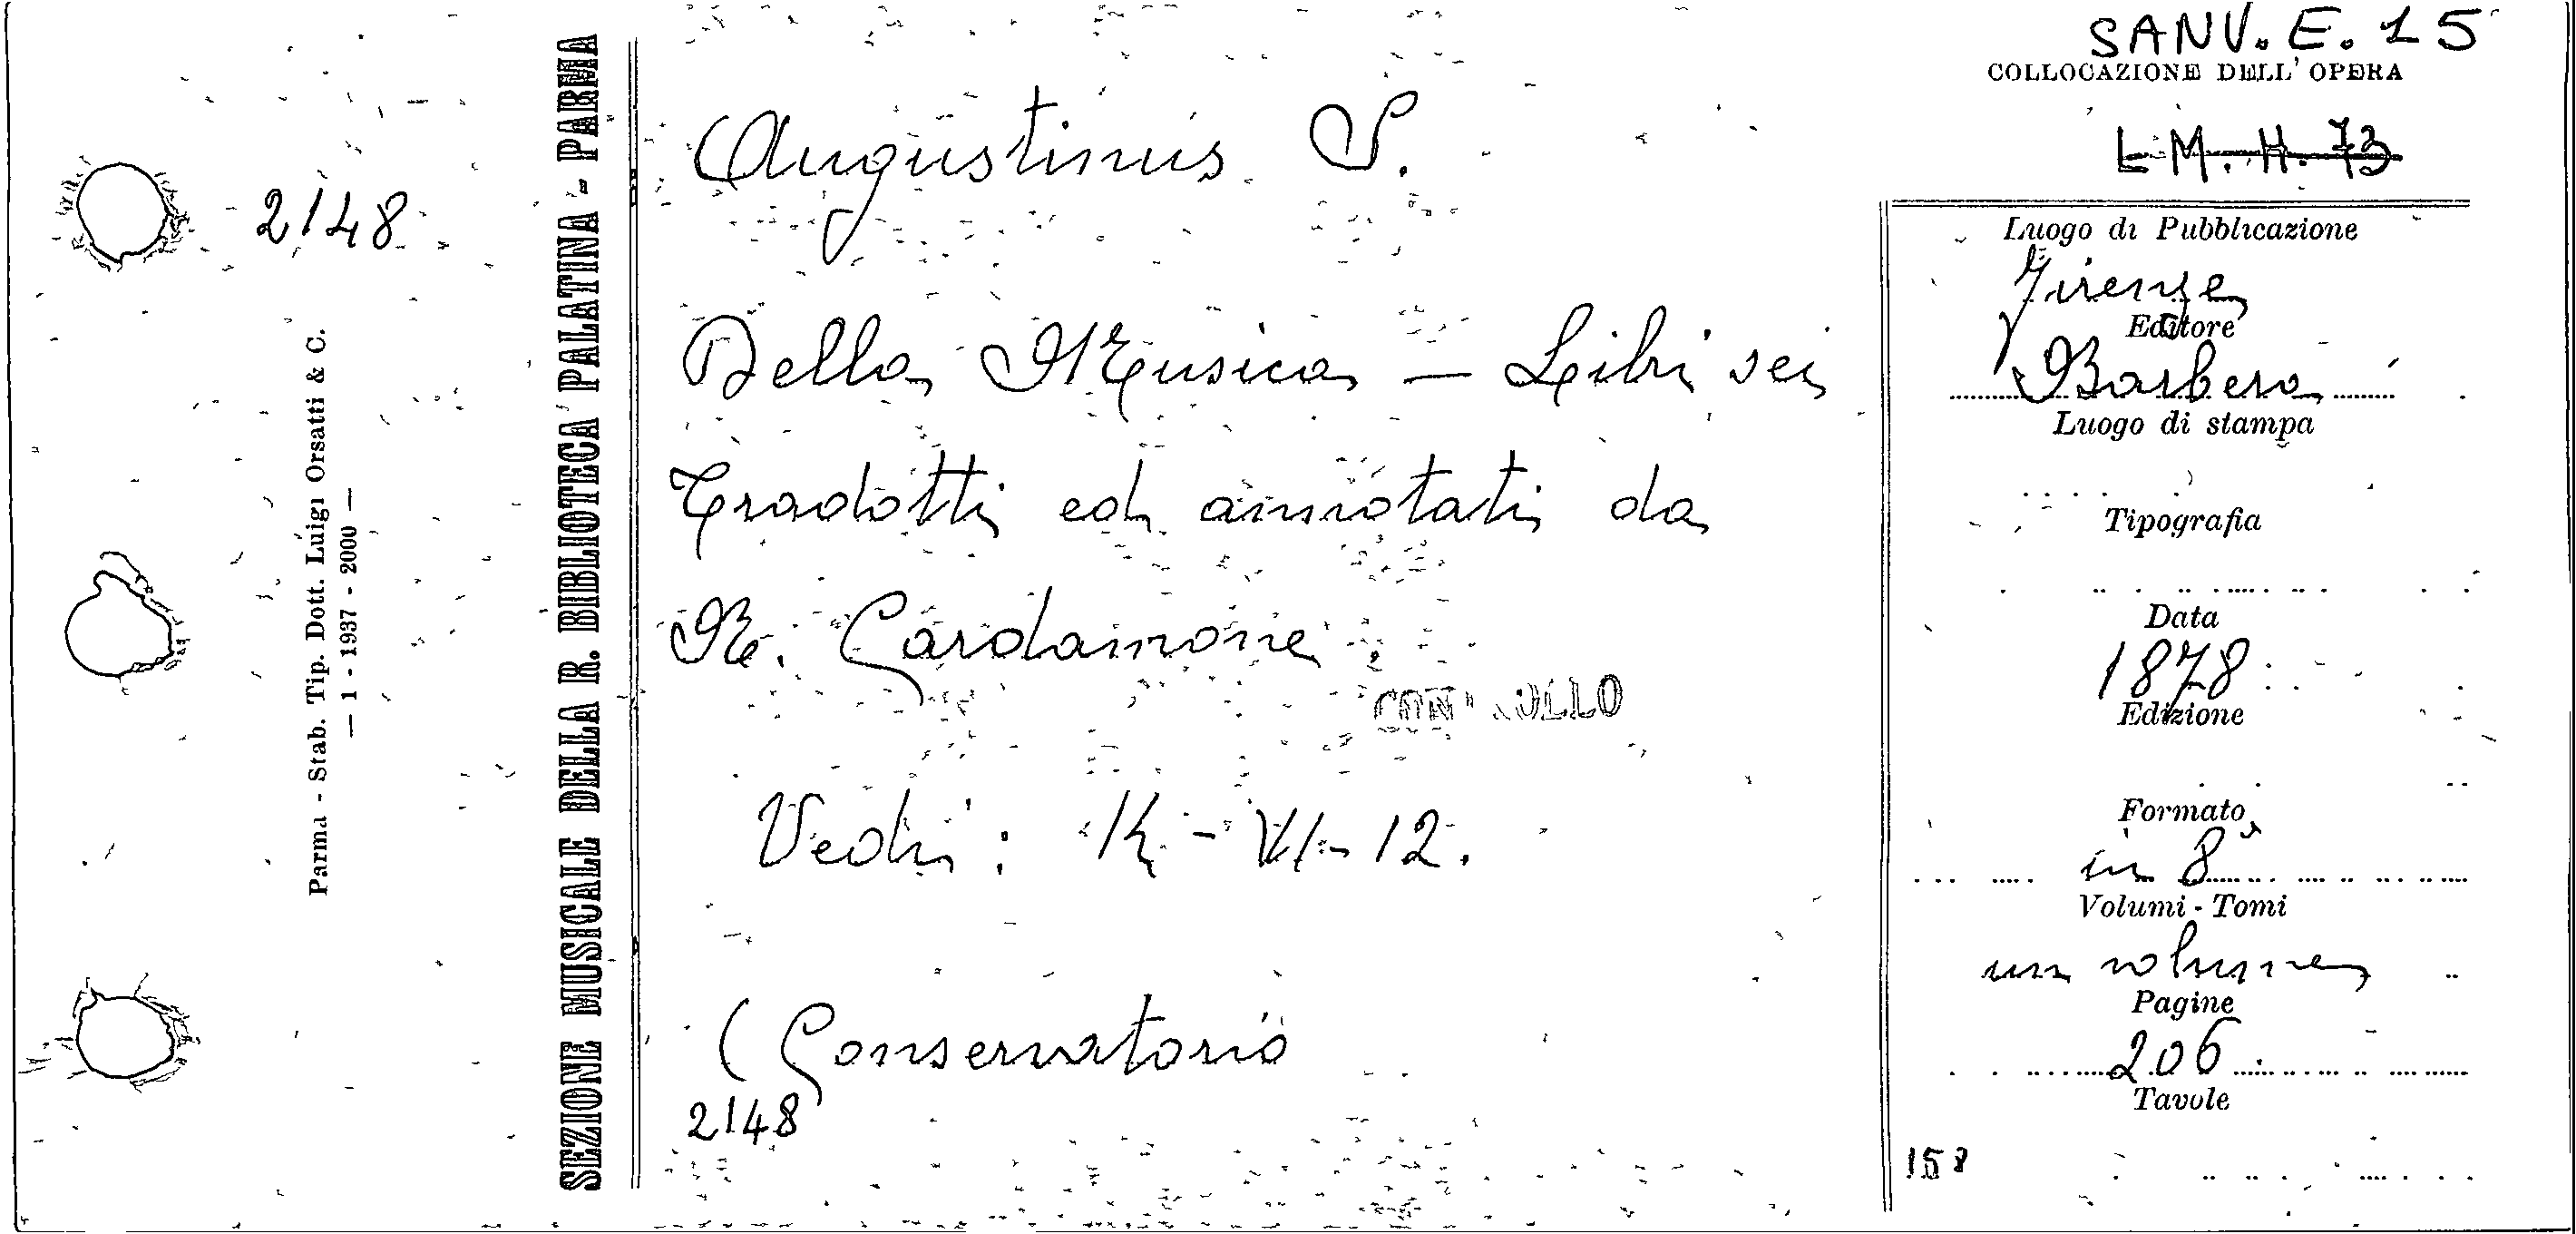 SANV. E. 15
COLLOCAZIONE DELL'OPERA
L M. H. 73
2148
Parma - Stab. Tip. Dott. Luigi Orsatti & C.
— 1 - 1937 - 2000 —
SEZIONE MUSICALE DELLA R. BIBLIOTECA PALATINA - PARMA
Augustinus S.
Della Musica — Libri sei
Tradotti ed annotati da
R. Cardamone.
CONTROLLO
Vedi: K - VI - 12.
(Conservatorio
2148
Luogo di Pubblicazione
Firenze
Editore
Barbera
Luogo di stampa
Tipografia
Data
1878
Edizione
Formato
in 8°
Volumi - Tomi
un volume
Pagine
206
Tavole
158